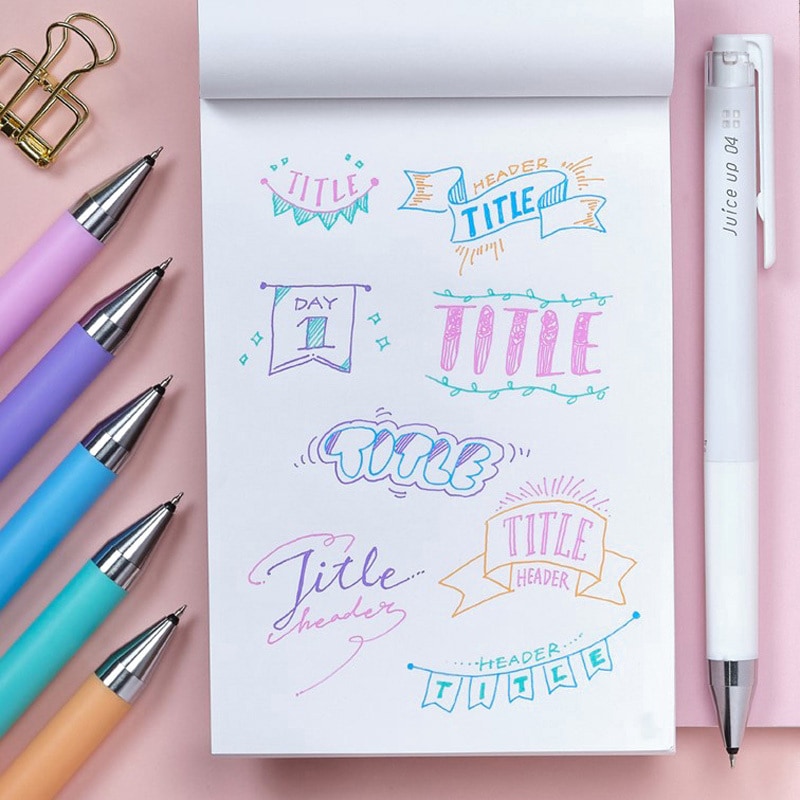 TITLE
HEADER
TITLE
DAY
1
TITLE
TITLE
Title
header
TITLE
HEADER
HEADER
TITLE
Juice up 04